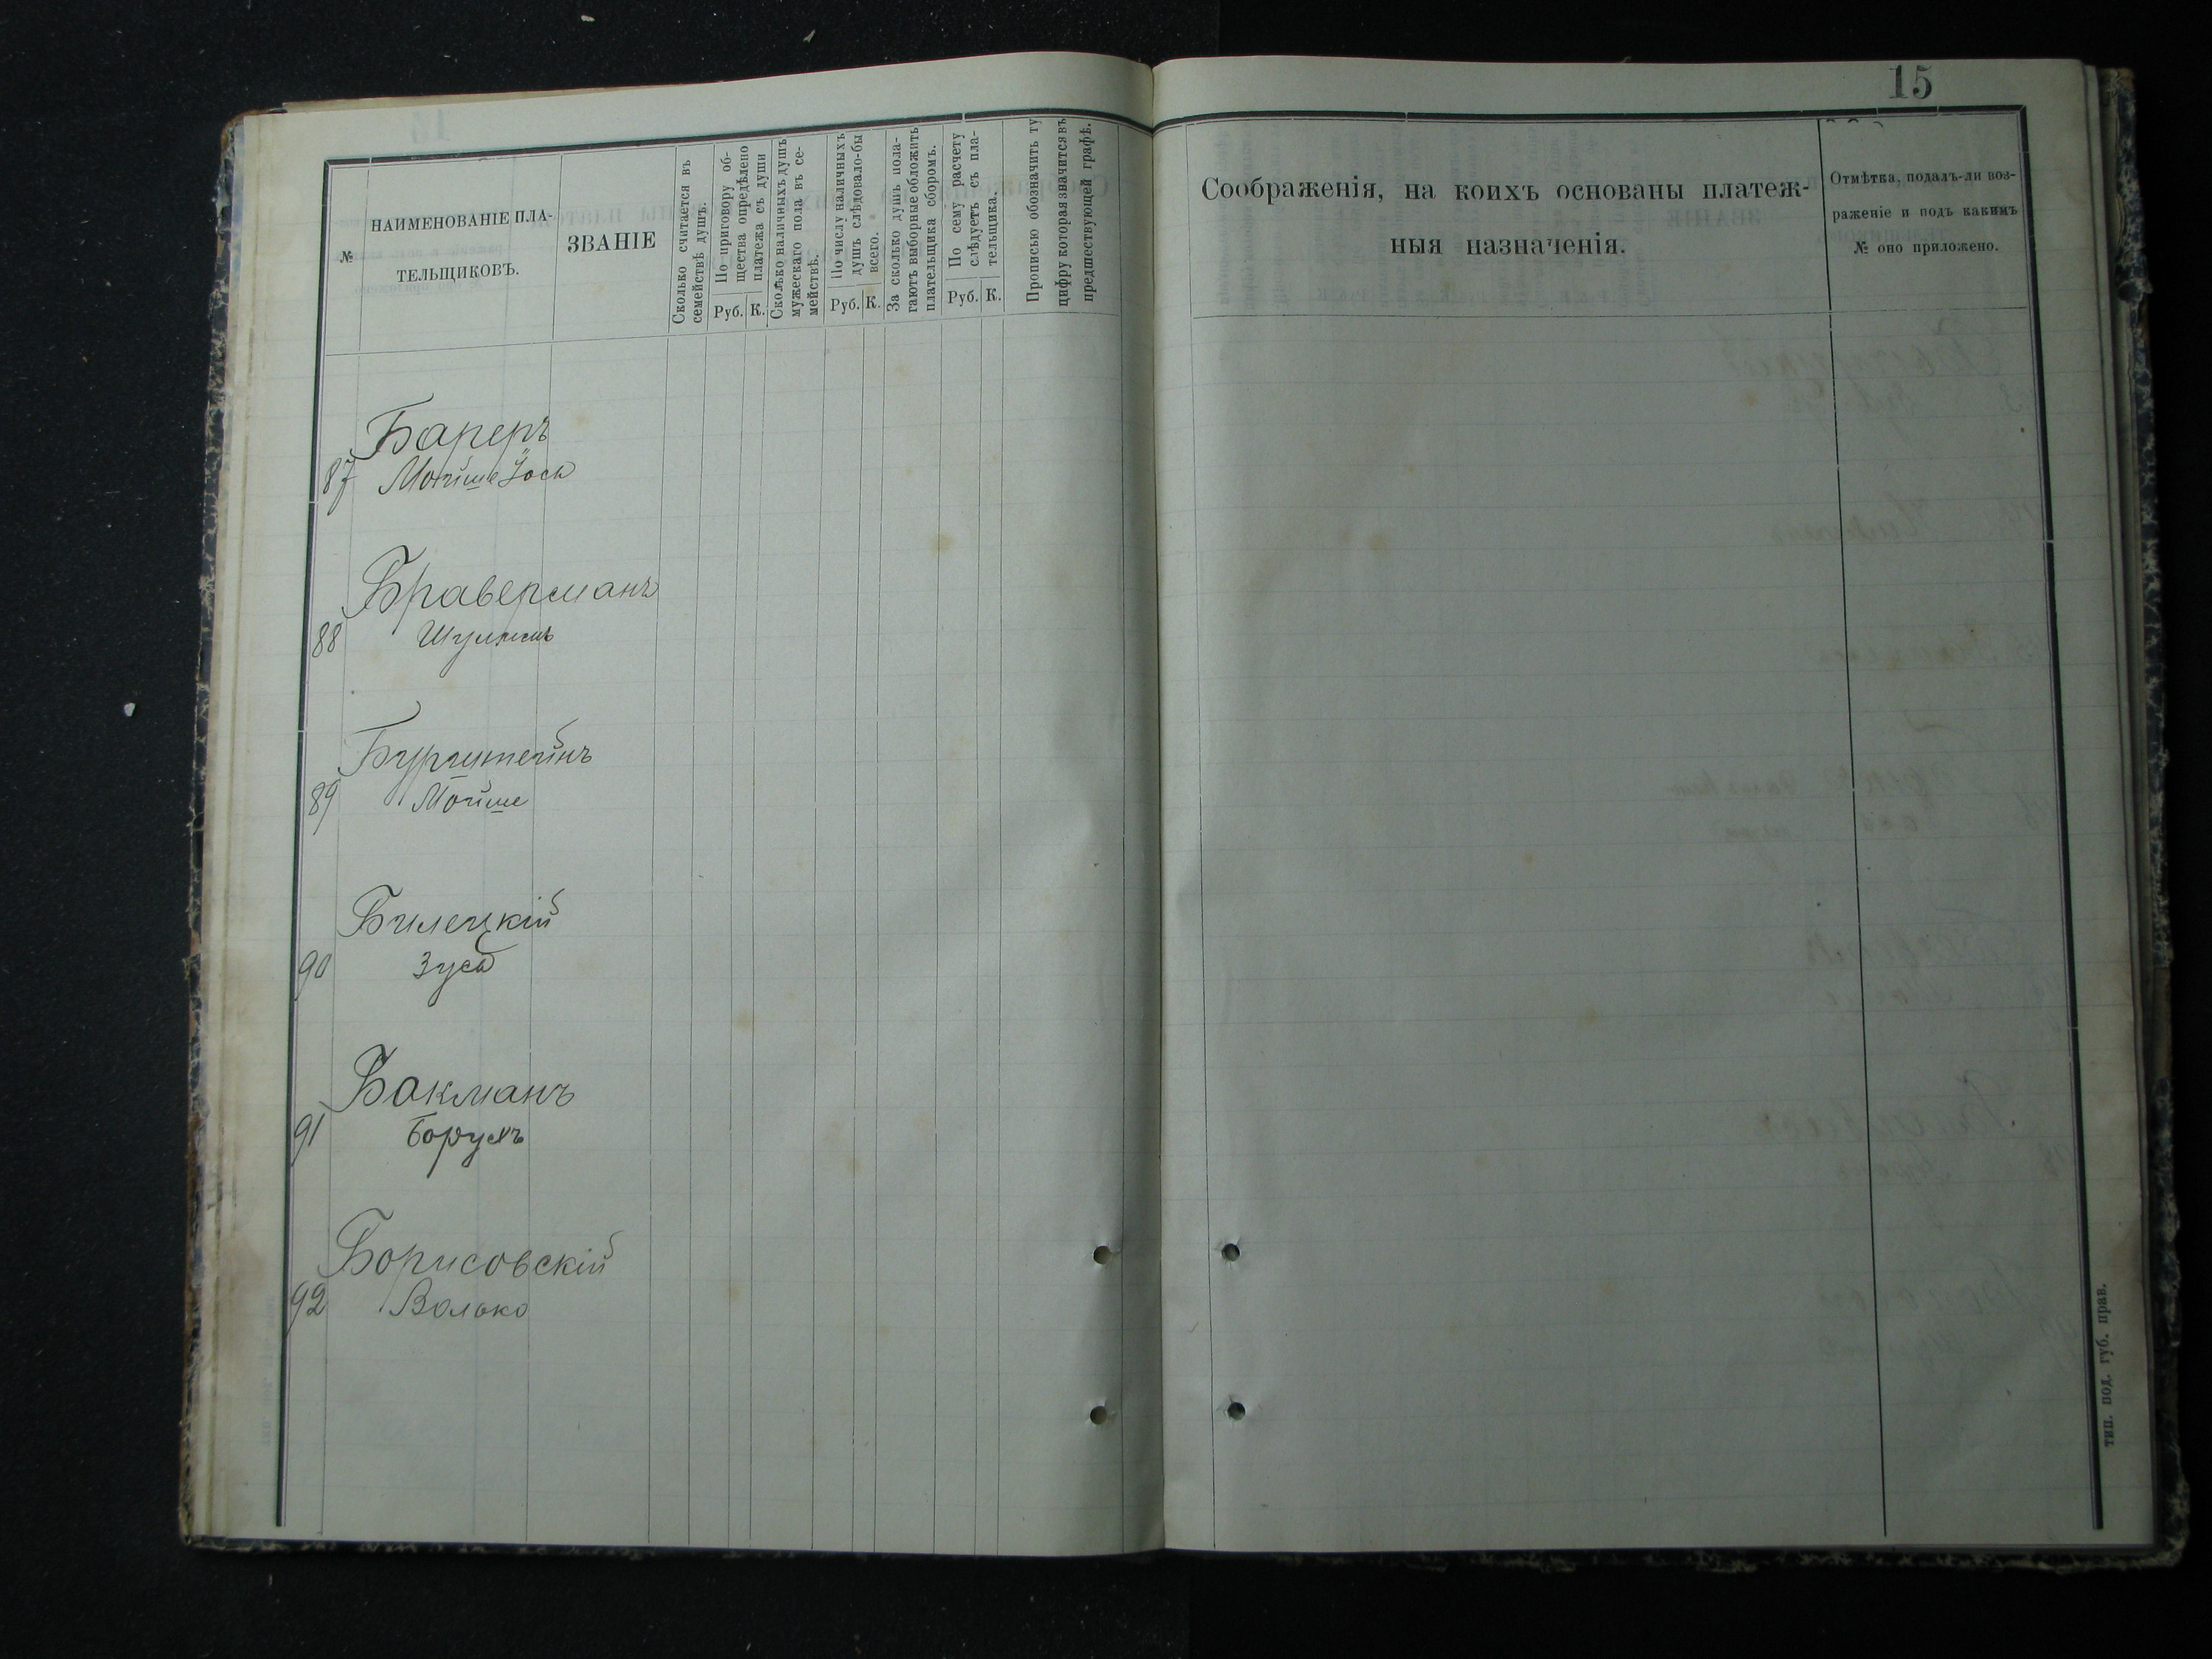 15
№
НАИМЕНОВАНІЕ ПЛА-
ТЕЛЬЩИКОВЪ.
ЗВАНІЕ
Сколько считается въ
семействѣ душъ.
По приговору об-
щества опредѣлено
платежа съ души
Руб. К.
Сколько наличныхъ душъ
мужескаго пола въ се-
мействѣ.
По числу наличныхъ
душъ слѣдовало-бы
всего.
Руб. К.
За сколько душъ пола-
гаютъ выборные обложить
плательщика сборомъ.
По сему расчету
слѣдуетъ съ пла-
тельщика.
Руб. К.
Прописью обозначить ту
цифру которая значится въ
предшествующей графѣ.
Соображенія, на коихъ основаны платеж-
ныя назначенія.
Отмѣтка, подалъ-ли воз-
раженіе и подъ какимъ
№ оно приложено.
Бареръ
87 Мойше Йось
Браверманъ
88
Бурштейнъ
89 Мойше
Билецкій
90 Зусь
Бакманъ
91 Борухъ
Борисовскій
92 Волько
тип. под. губ. прав.